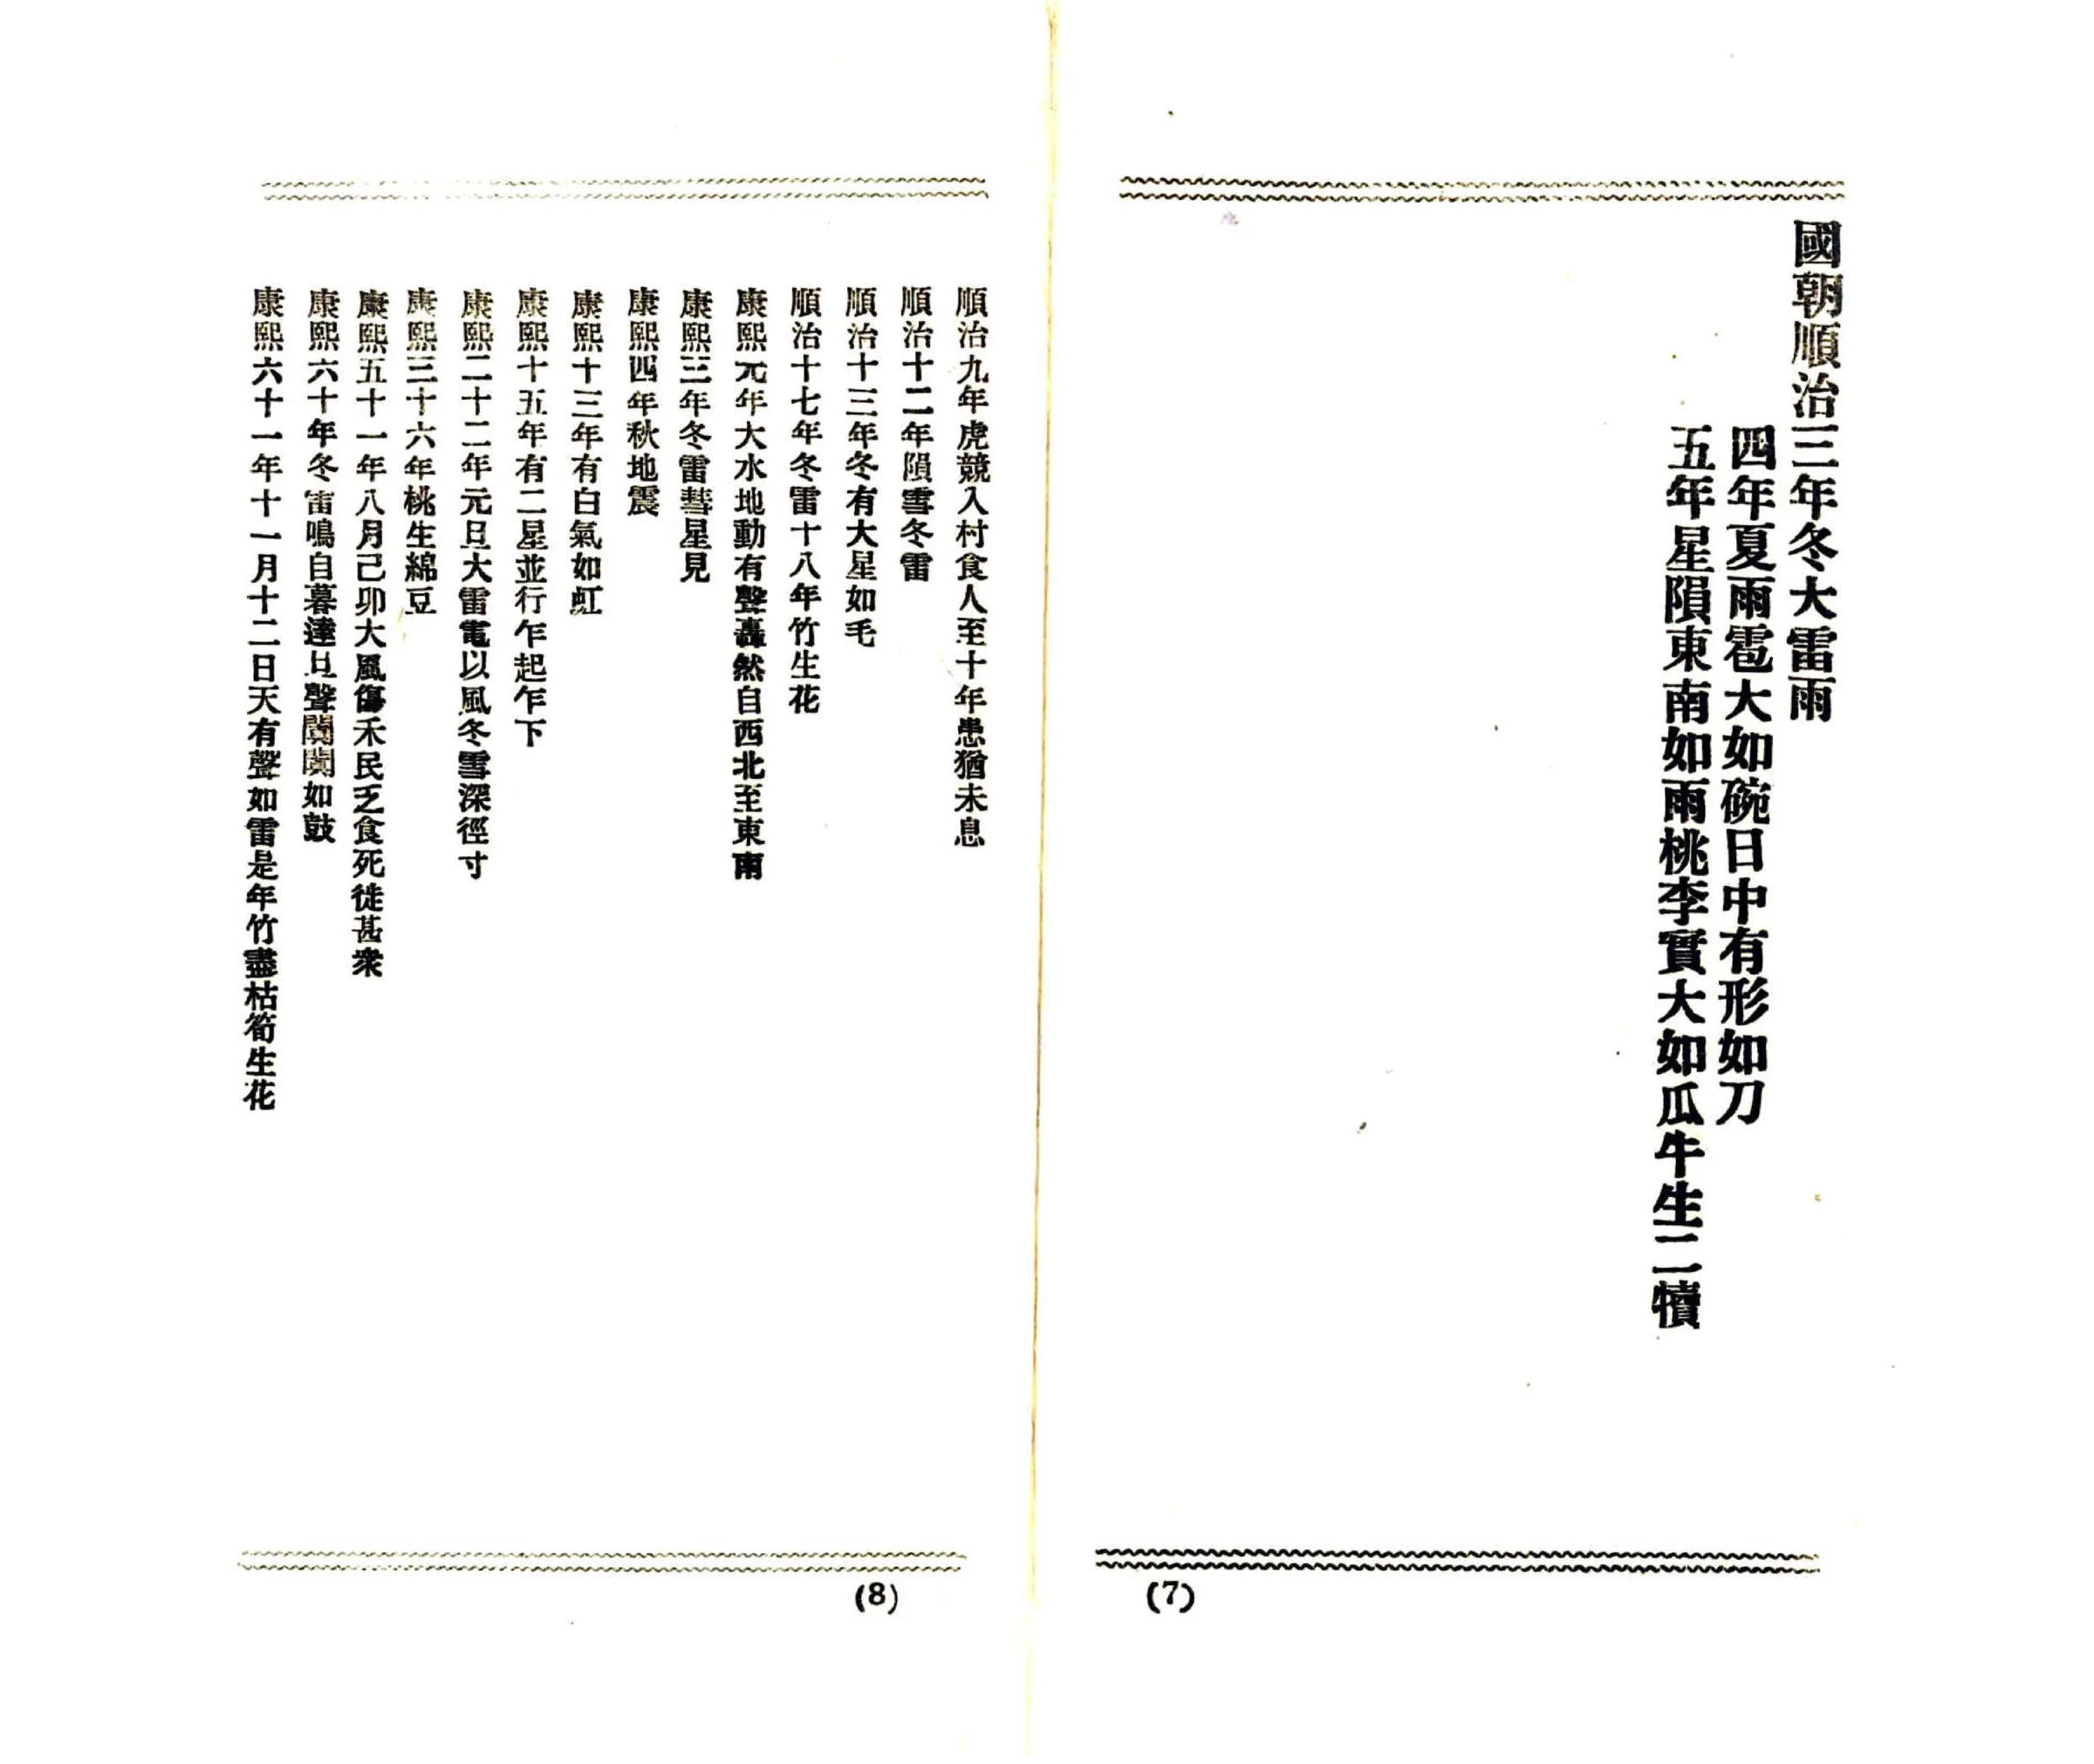 國朝順治三年冬大雷雨
四年夏雨雹大如碗日中有形如刀
五年星隕東南如雨桃李實大如瓜牛生二犢
(7)
順治九年虎競入村食人至十年患猶未息
順治十二年隕雪冬雷
順治十三年冬有大星如毛
順治十七年冬雷十八年竹生花
康熙元年大水地動有聲轟然自西北至東南
康熙三年冬雷彗星見
康熙四年秋地震
康熙十三年有白氣如虹
康熙十五年有二星並行乍起乍下
康熙二十二年元旦大雷電以風冬雪深徑寸
康熙三十六年桃生綿豆
康熙五十一年八月己卯大風傷禾民乏食死徙甚衆
康熙六十年冬雷鳴自暮達旦聲闐闐如鼓
康熙六十一年十一月十二日天有聲如雷是年竹盡枯筍生花
(8)